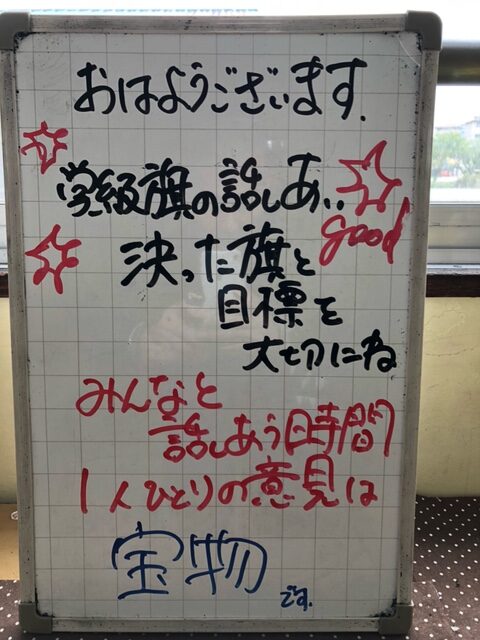 おはようございます.
学級旗の話しあい
good
決った旗と
目標を
大切にね
みんなと
話しあう時間
1人ひとりの意見は
宝物
です.